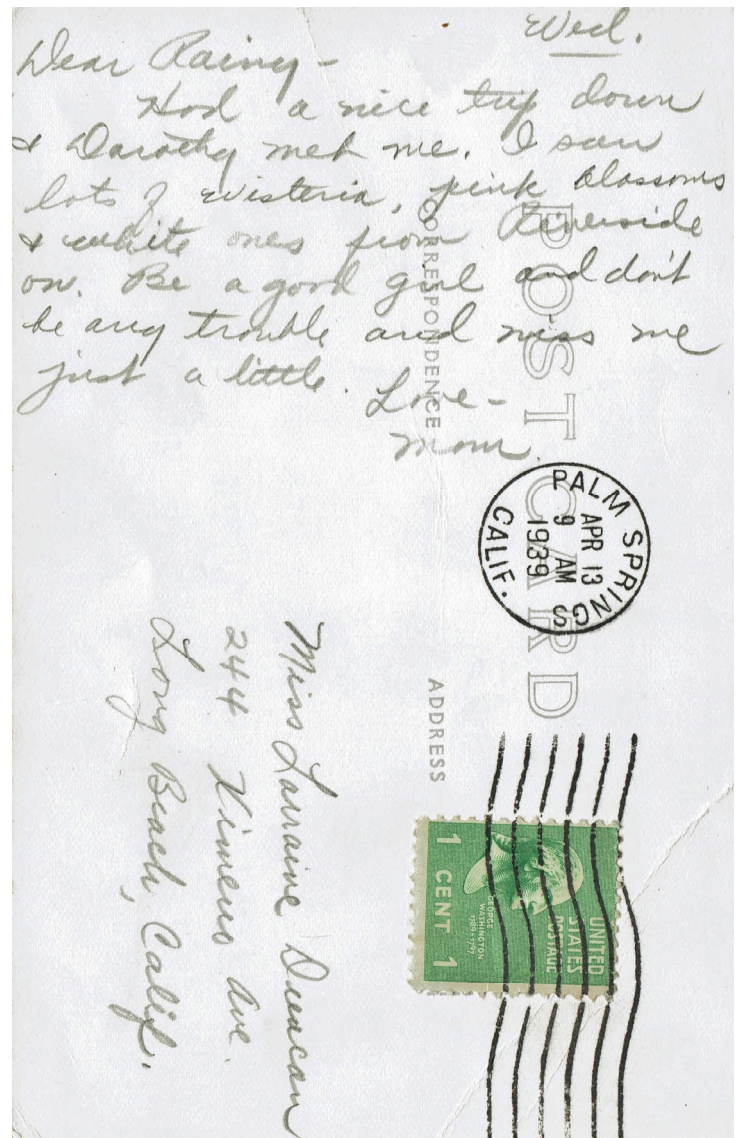 Wed.
Dear Rainy-
Had a nice trip down
& Dorothy met me. I saw
lots of wisteria, pink blossoms
& white ones from Riverside
on. Be a good girl and don't
be any trouble and miss me
just a little. Love-
Mom
POST CARD
CORRESPONDENCE
ADDRESS
PALM SPRINGS
APR 13
9 AM
1939
CALIF.
Miss Larraine Duncan
244 Ximeno Ave.
Long Beach, Calif.
UNITED
STATES
POSTAGE
GEORGE
WASHINGTON
1789-1797
1 CENT 1